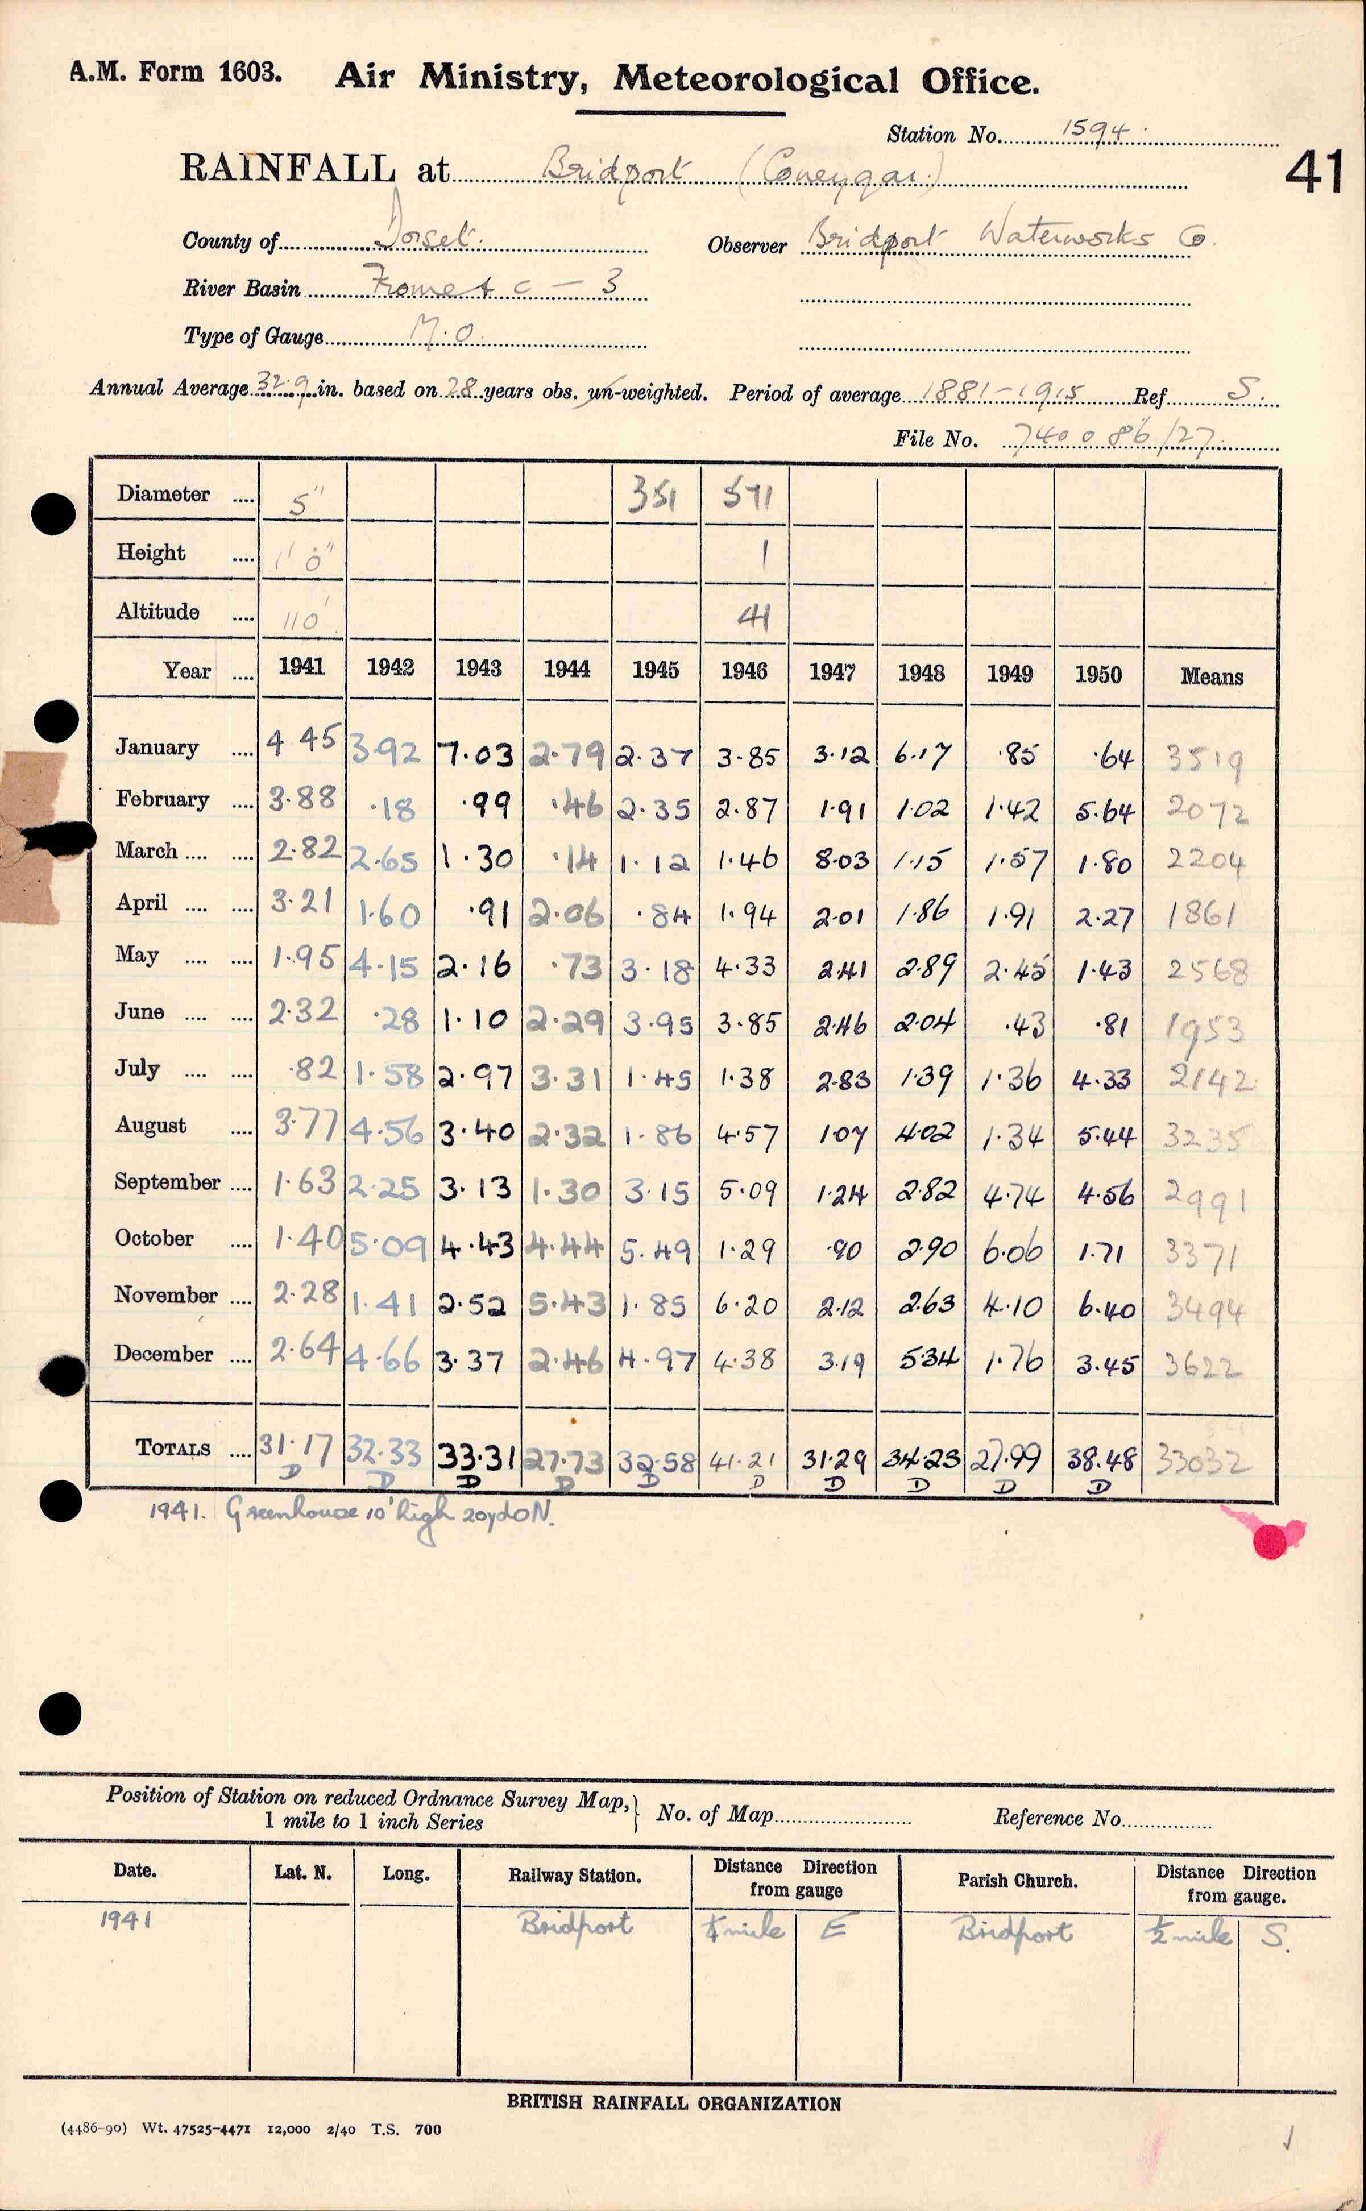 A.M. Form 1603. Air Ministry, Meteorological Office.
Station No. 1594.
41
RAINFALL at Bridport (Coneygar.)
County of Dorset. Observer Bridport Waterworks Co.
River Basin Frome & c — 3
Type of Gauge M.O.
Annual Average 32.9 in. based on 28 years obs. un-weighted. Period of average 1881-1915 Ref S.
File No. 740086/27.
Diameter .... 5" 351 571
Height .... 1' 0" 1
Altitude .... 110' 41
Year .... 1941 1942 1943 1944 1945 1946 1947 1948 1949 1950 Means
January .... 4 45 3.92 7.03 2.79 2.37 3.85 3.12 6.17 .85 .64 3519
February .... 3.88 .18 .99 .46 2.35 2.87 1.91 1.02 1.42 5.64 2072
March .... .... 2.82 2.65 1.30 .14 1.12 1.46 8.03 1.15 1.57 1.80 2204
April .... .... 3.21 1.60 .91 2.06 .84 1.94 2.01 1.86 1.91 2.27 1861
May .... .... 1.95 4.15 2.16 .73 3.18 4.33 2.41 2.89 2.45 1.43 2568
June .... .... 2.32 .28 1.10 2.29 3.95 3.85 2.46 2.04 .43 .81 1953
July .... .... .82 1.58 2.97 3.31 1.45 1.38 2.83 1.39 1.36 4.33 2142
August .... 3.77 4.56 3.40 2.32 1.86 4.57 1.07 4.02 1.34 5.44 3235
September .... 1.63 2.25 3.13 1.30 3.15 5.09 1.24 2.82 4.74 4.56 2991
October .... 1.40 5.09 4.43 4.44 5.49 1.29 .90 2.90 6.06 1.71 3371
November .... 2.28 1.41 2.52 5.43 1.85 6.20 2.12 2.63 4.10 6.40 3494
December .... 2.64 4.66 3.37 2.46 4.97 4.38 3.19 5.34 1.76 3.45 3622
TOTALS .... 31.17 32.33 33.31 27.73 32.58 41.21 31.29 34.23 27.99 38.48 33032
D D D D D D D D D D
1941. Greenhouse 10' high 20yds N.
Position of Station on reduced Ordnance Survey Map, } No. of Map Reference No.
1 mile to 1 inch Series
Date. Lat. N. Long. Railway Station. Distance Direction from gauge Parish Church. Distance Direction from gauge.
1941 Bridport ¼ mile E Bridport ½ mile S.
BRITISH RAINFALL ORGANIZATION
(4486-90) Wt. 47525-4471 12,000 2/40 T.S. 700